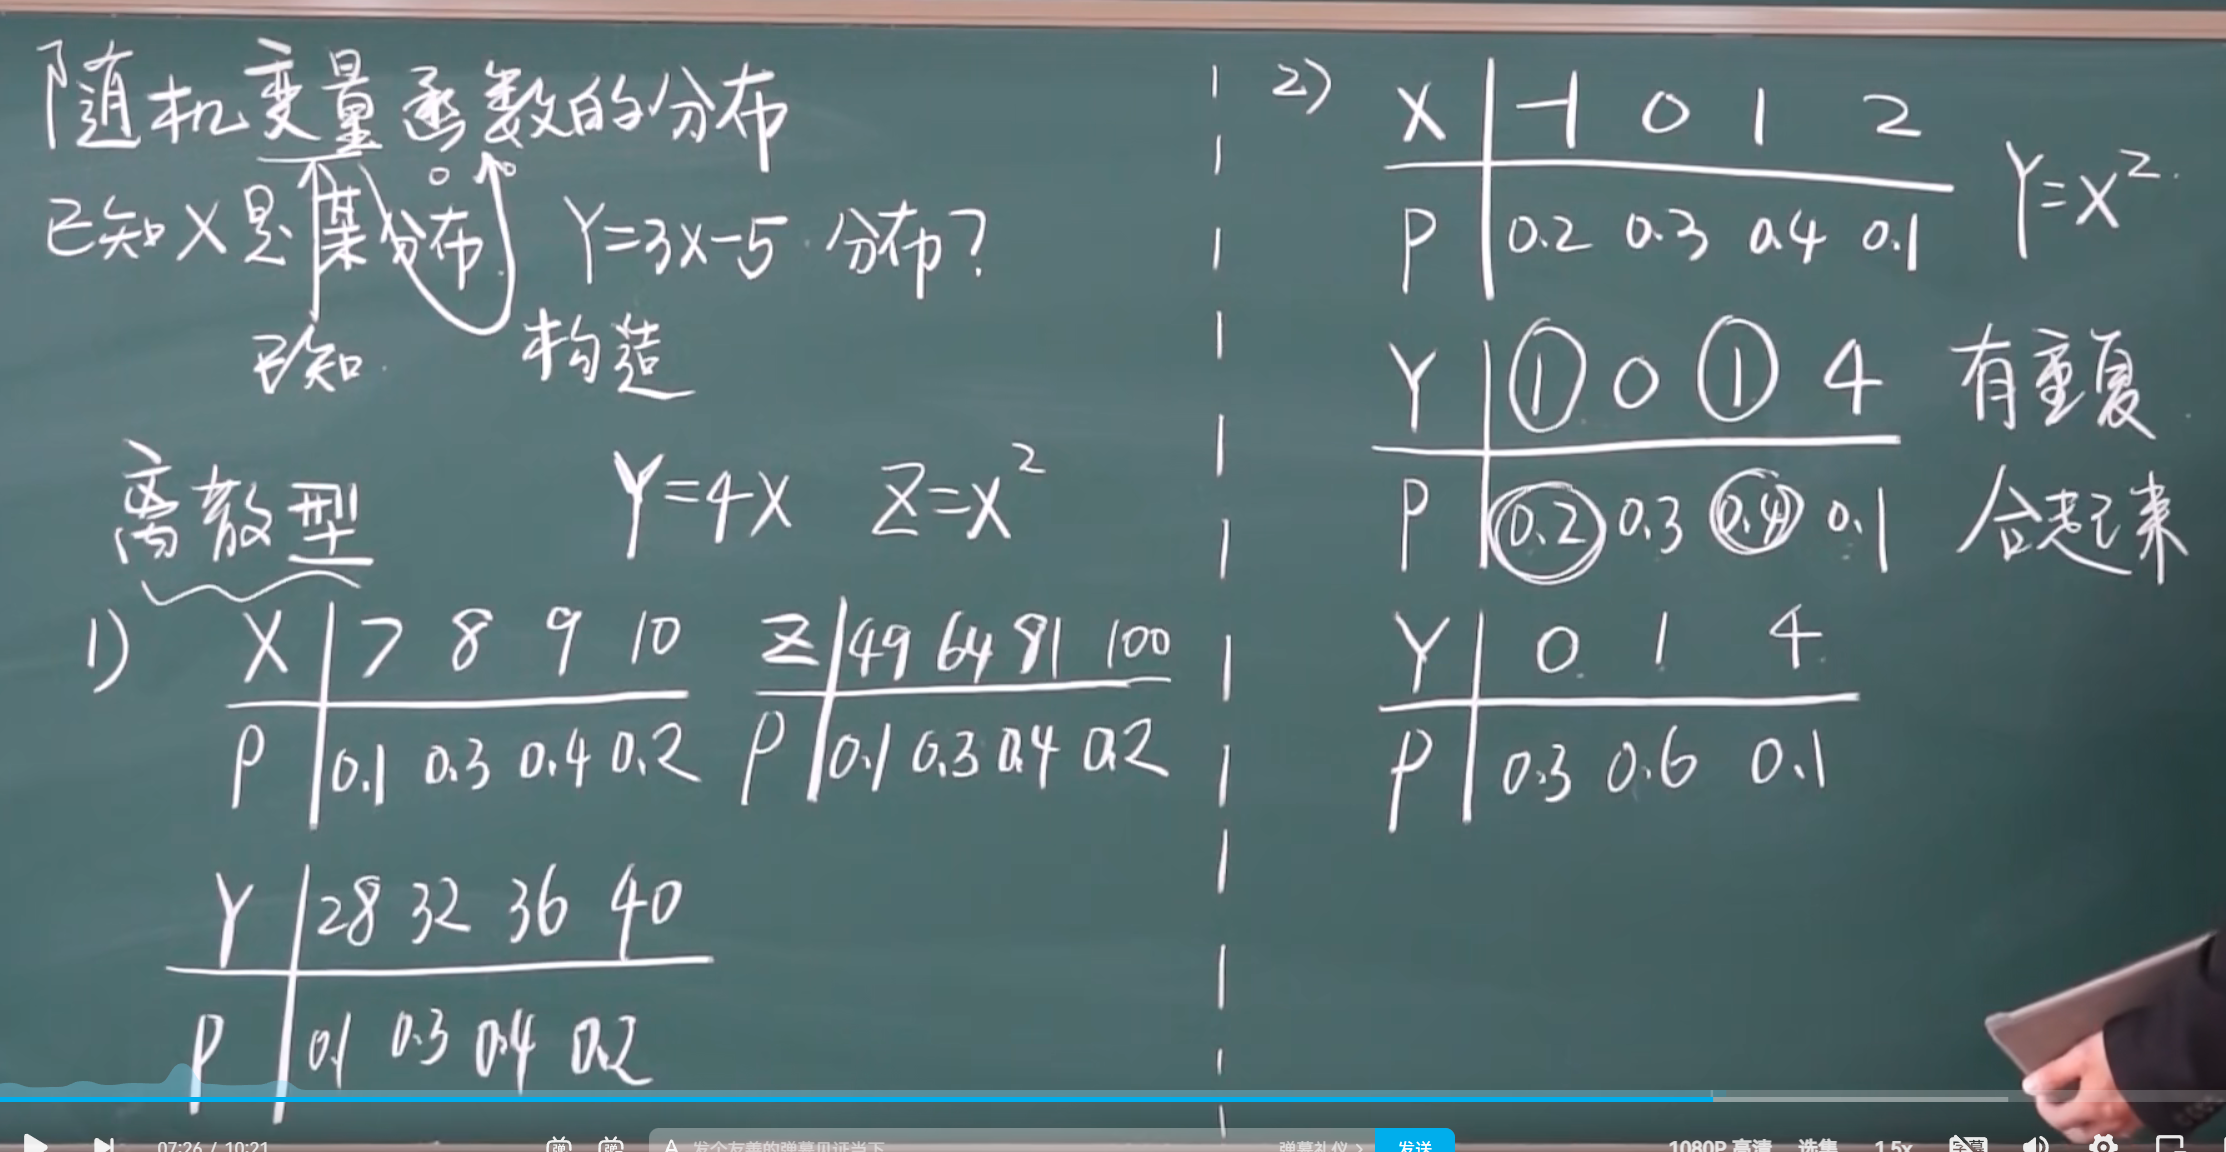 随机变量函数的分布
已知X是某分布 Y=3X-5 分布?
已知 构造
离散型 Y=4X Z=X²
1) X | 7 8 9 10
P | 0.1 0.3 0.4 0.2
Z | 49 64 81 100
P | 0.1 0.3 0.4 0.2
Y | 28 32 36 40
P | 0.1 0.3 0.4 0.2
2) X | -1 0 1 2
P | 0.2 0.3 0.4 0.1
Y=X²
Y | ① 0 ① 4 有重复
P | 0.2 0.3 0.4 0.1 合起来
Y | 0 1 4
P | 0.3 0.6 0.1
07:26 / 10:21 弹 弹 A 发个友善的弹幕见证当下 弹幕礼仪 > 发送 1080P 高清 选集 1.5x 字幕